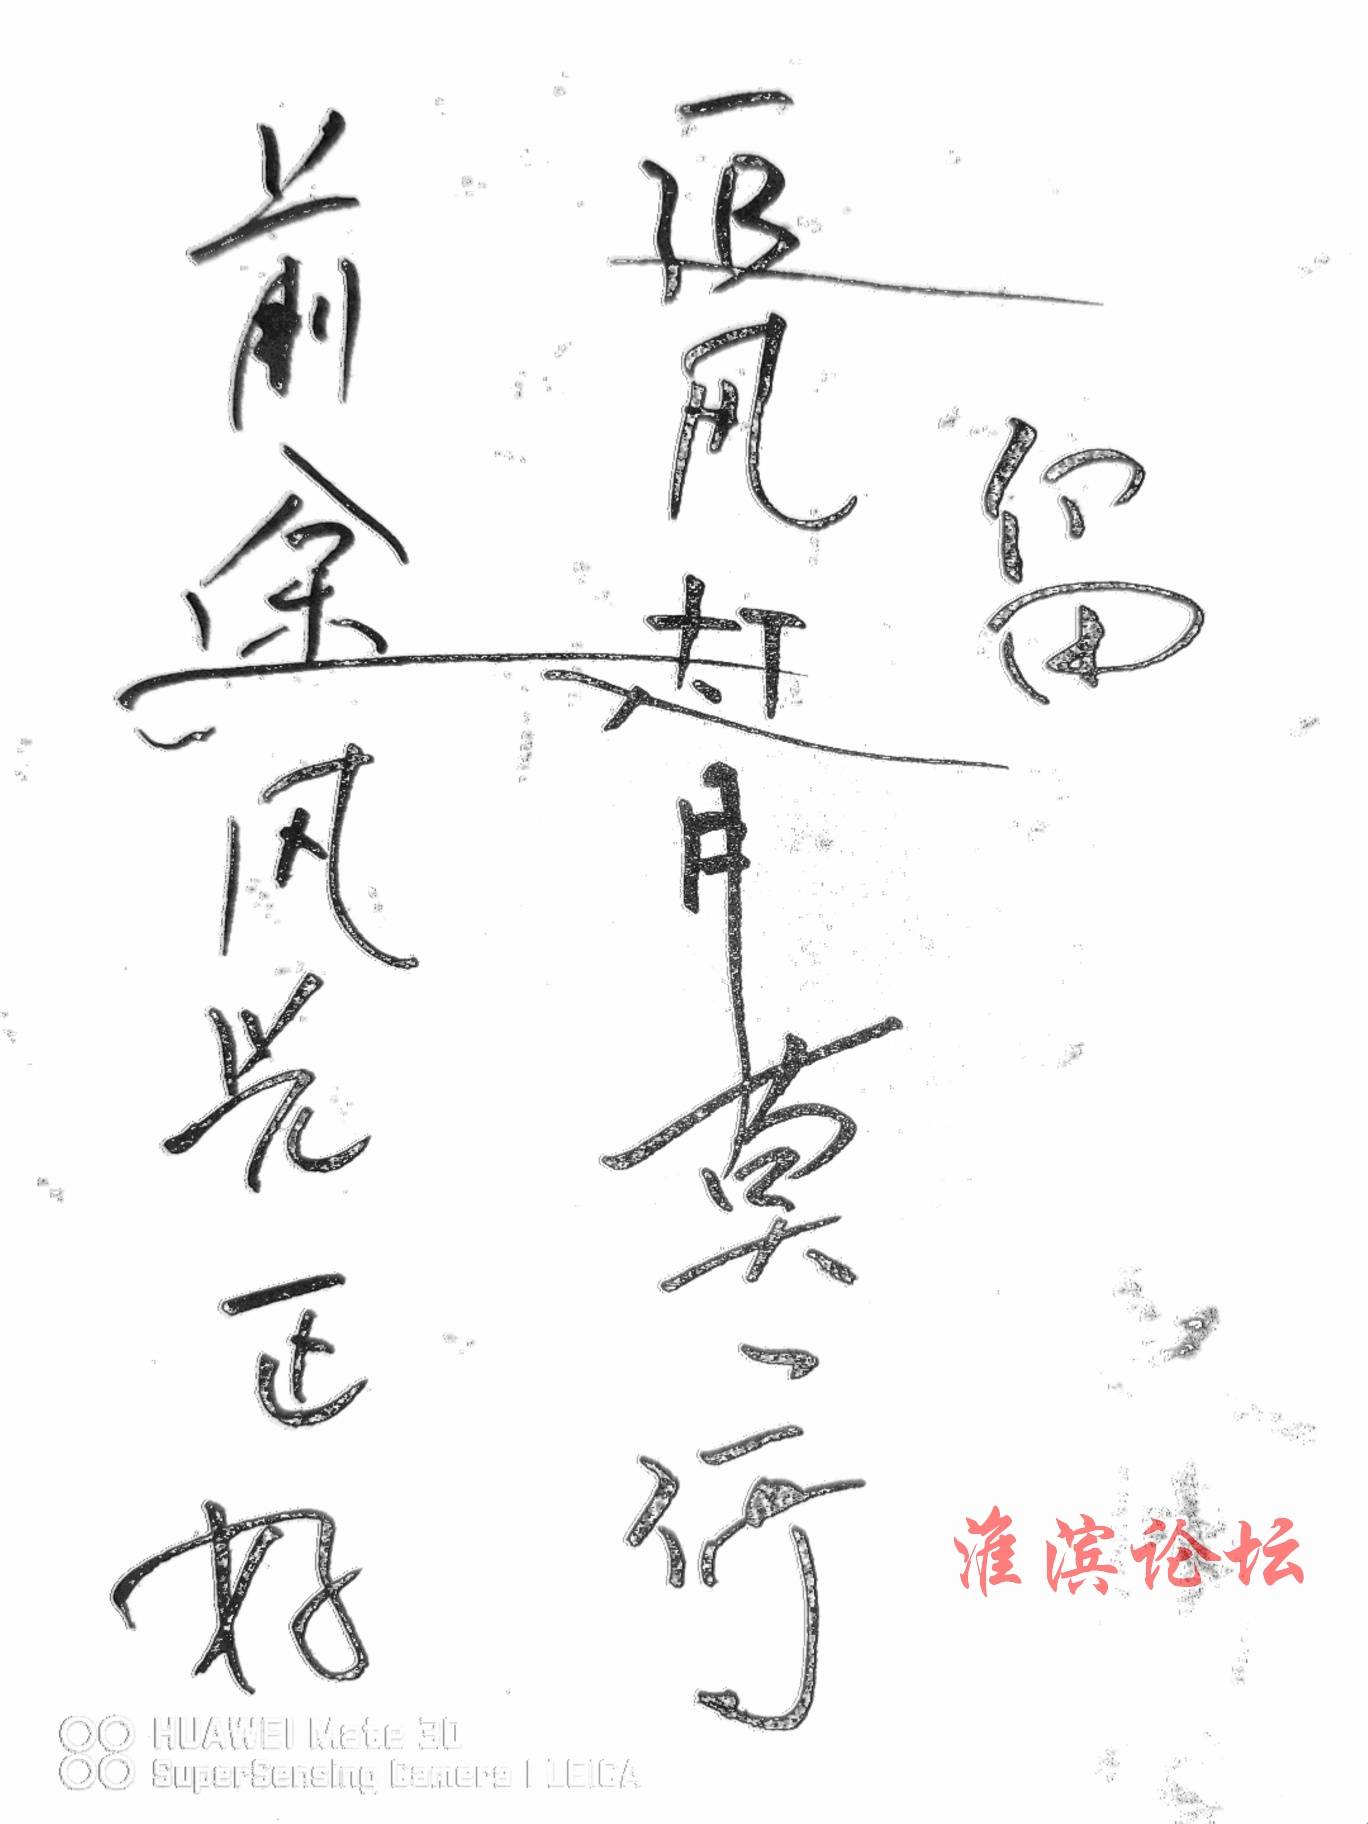 前途风光正好
追风赶月莫停
留
淮滨论坛
HUAWEI Mate 30
SuperSensing Camera | LEICA